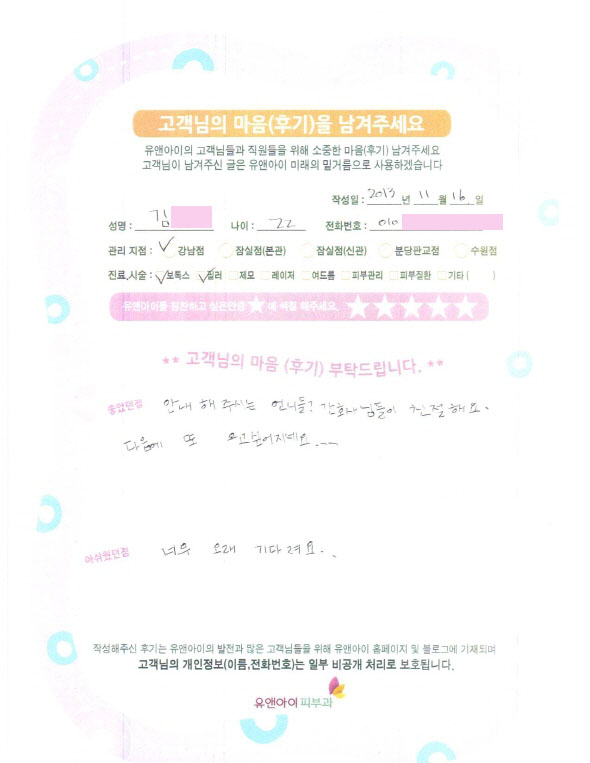 고객님의 마음(후기)을 남겨주세요
유앤아이의 고객님들과 직원들을 위해 소중한 마음(후기) 남겨주세요
고객님이 남겨주신 글은 유앤아이 미래의 밑거름으로 사용하겠습니다
작성일 : 2013 년 11 월 16 일
성명 : 김 나이 : 22 전화번호 : 010
관리 지점 : 강남점 잠실점(본관) 잠실점(신관) 분당판교점 수원점
진료,시술 : 보톡스 필러 제모 레이저 여드름 피부관리 피부질환 기타 ( )
유앤아이를 칭찬하고 싶은만큼 ★에 색칠 해주세요. ★★★★★
** 고객님의 마음 (후기) 부탁드립니다. **
좋았던점 안내 해 주시는 언니들? 간호사님들이 친절해요.
다음에 또 오고싶어지네요...
아쉬웠던점 너무 오래 기다려요..
작성해주신 후기는 유앤아이의 발전과 많은 고객님들을 위해 유앤아이 홈페이지 및 블로그에 기재되며
고객님의 개인정보(이름,전화번호)는 일부 비공개 처리로 보호됩니다.
유앤아이 피부과